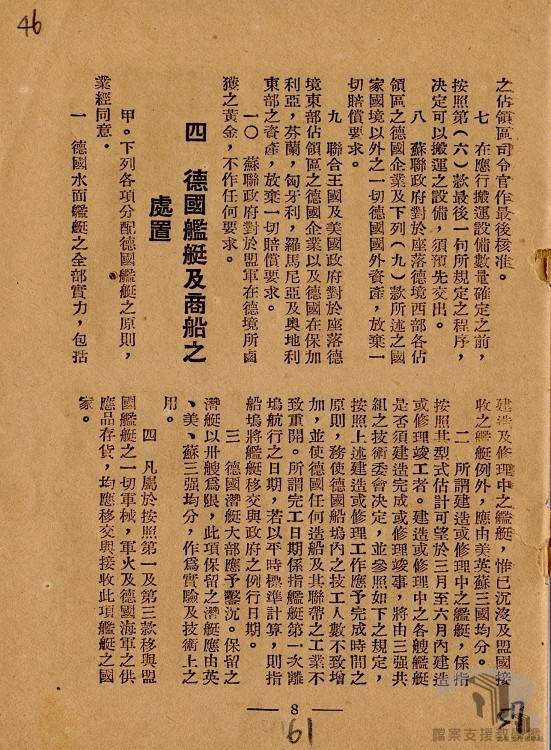 46
之佔領區司令官作最後核准。
七　在應行搬運設備數量確定之前，
按照第（六）款最後一句所規定之程序，
決定可以搬運之設備，須預先交出。
八　蘇聯政府對於座落德境西部各佔
領區之德國企業及下列（九）款所述之國
家國境以外之一切德國國外資產，放棄一
切賠償要求。
九　聯合王國及美國政府對於座落德
境東部佔領區之德國企業以及德國在保加
利亞，芬蘭，匈牙利，羅馬尼亞及奧地利
東部之資產，放棄一切賠償要求。
一〇　蘇聯政府對於盟軍在德境所鹵
獲之黃金，不作任何要求。
四　德國艦艇及商船之
處置
甲。下列各項分配德國艦艇之原則，
業經同意。
一　德國水面艦艇之全部實力，包括
建造及修理中之艦艇，惟已沉沒及盟國接
收之艦艇例外，應由美英蘇三國均分。
二　所謂建造或修理中之艦艇，係指
按照其型式估計可望於三月至六月內建造
或修理竣工者。建造或修理中之各艘艦艇
是否須建造完成或修理竣事，將由三强共
組之技術委會決定，並參照如下之規定，
按照上述建造或修理工作應予完成時間之
原則，務使德國船塢內之技工人數不致增
加，並使德國任何造船及其聯帶之工業不
致重開。所謂完工日期係指艦艇第一次離
塢航行之日期，若以平時標準計算，則指
船塢將艦艇移交與政府之例行日期。
三　德國潛艇大部應予鑿沉。保留之
潛艇以卅艘爲限，此項保留之潛艇應由英
、美、蘇三强均分，作爲實驗及技術上之
用。
四　凡屬於按照第一及第三款移與盟
國艦艇之一切軍械，軍火及德國海軍之供
應品存貨，均應移交與接收此項艦艇之國
家。
— 8 —
61
檔案支援教學網